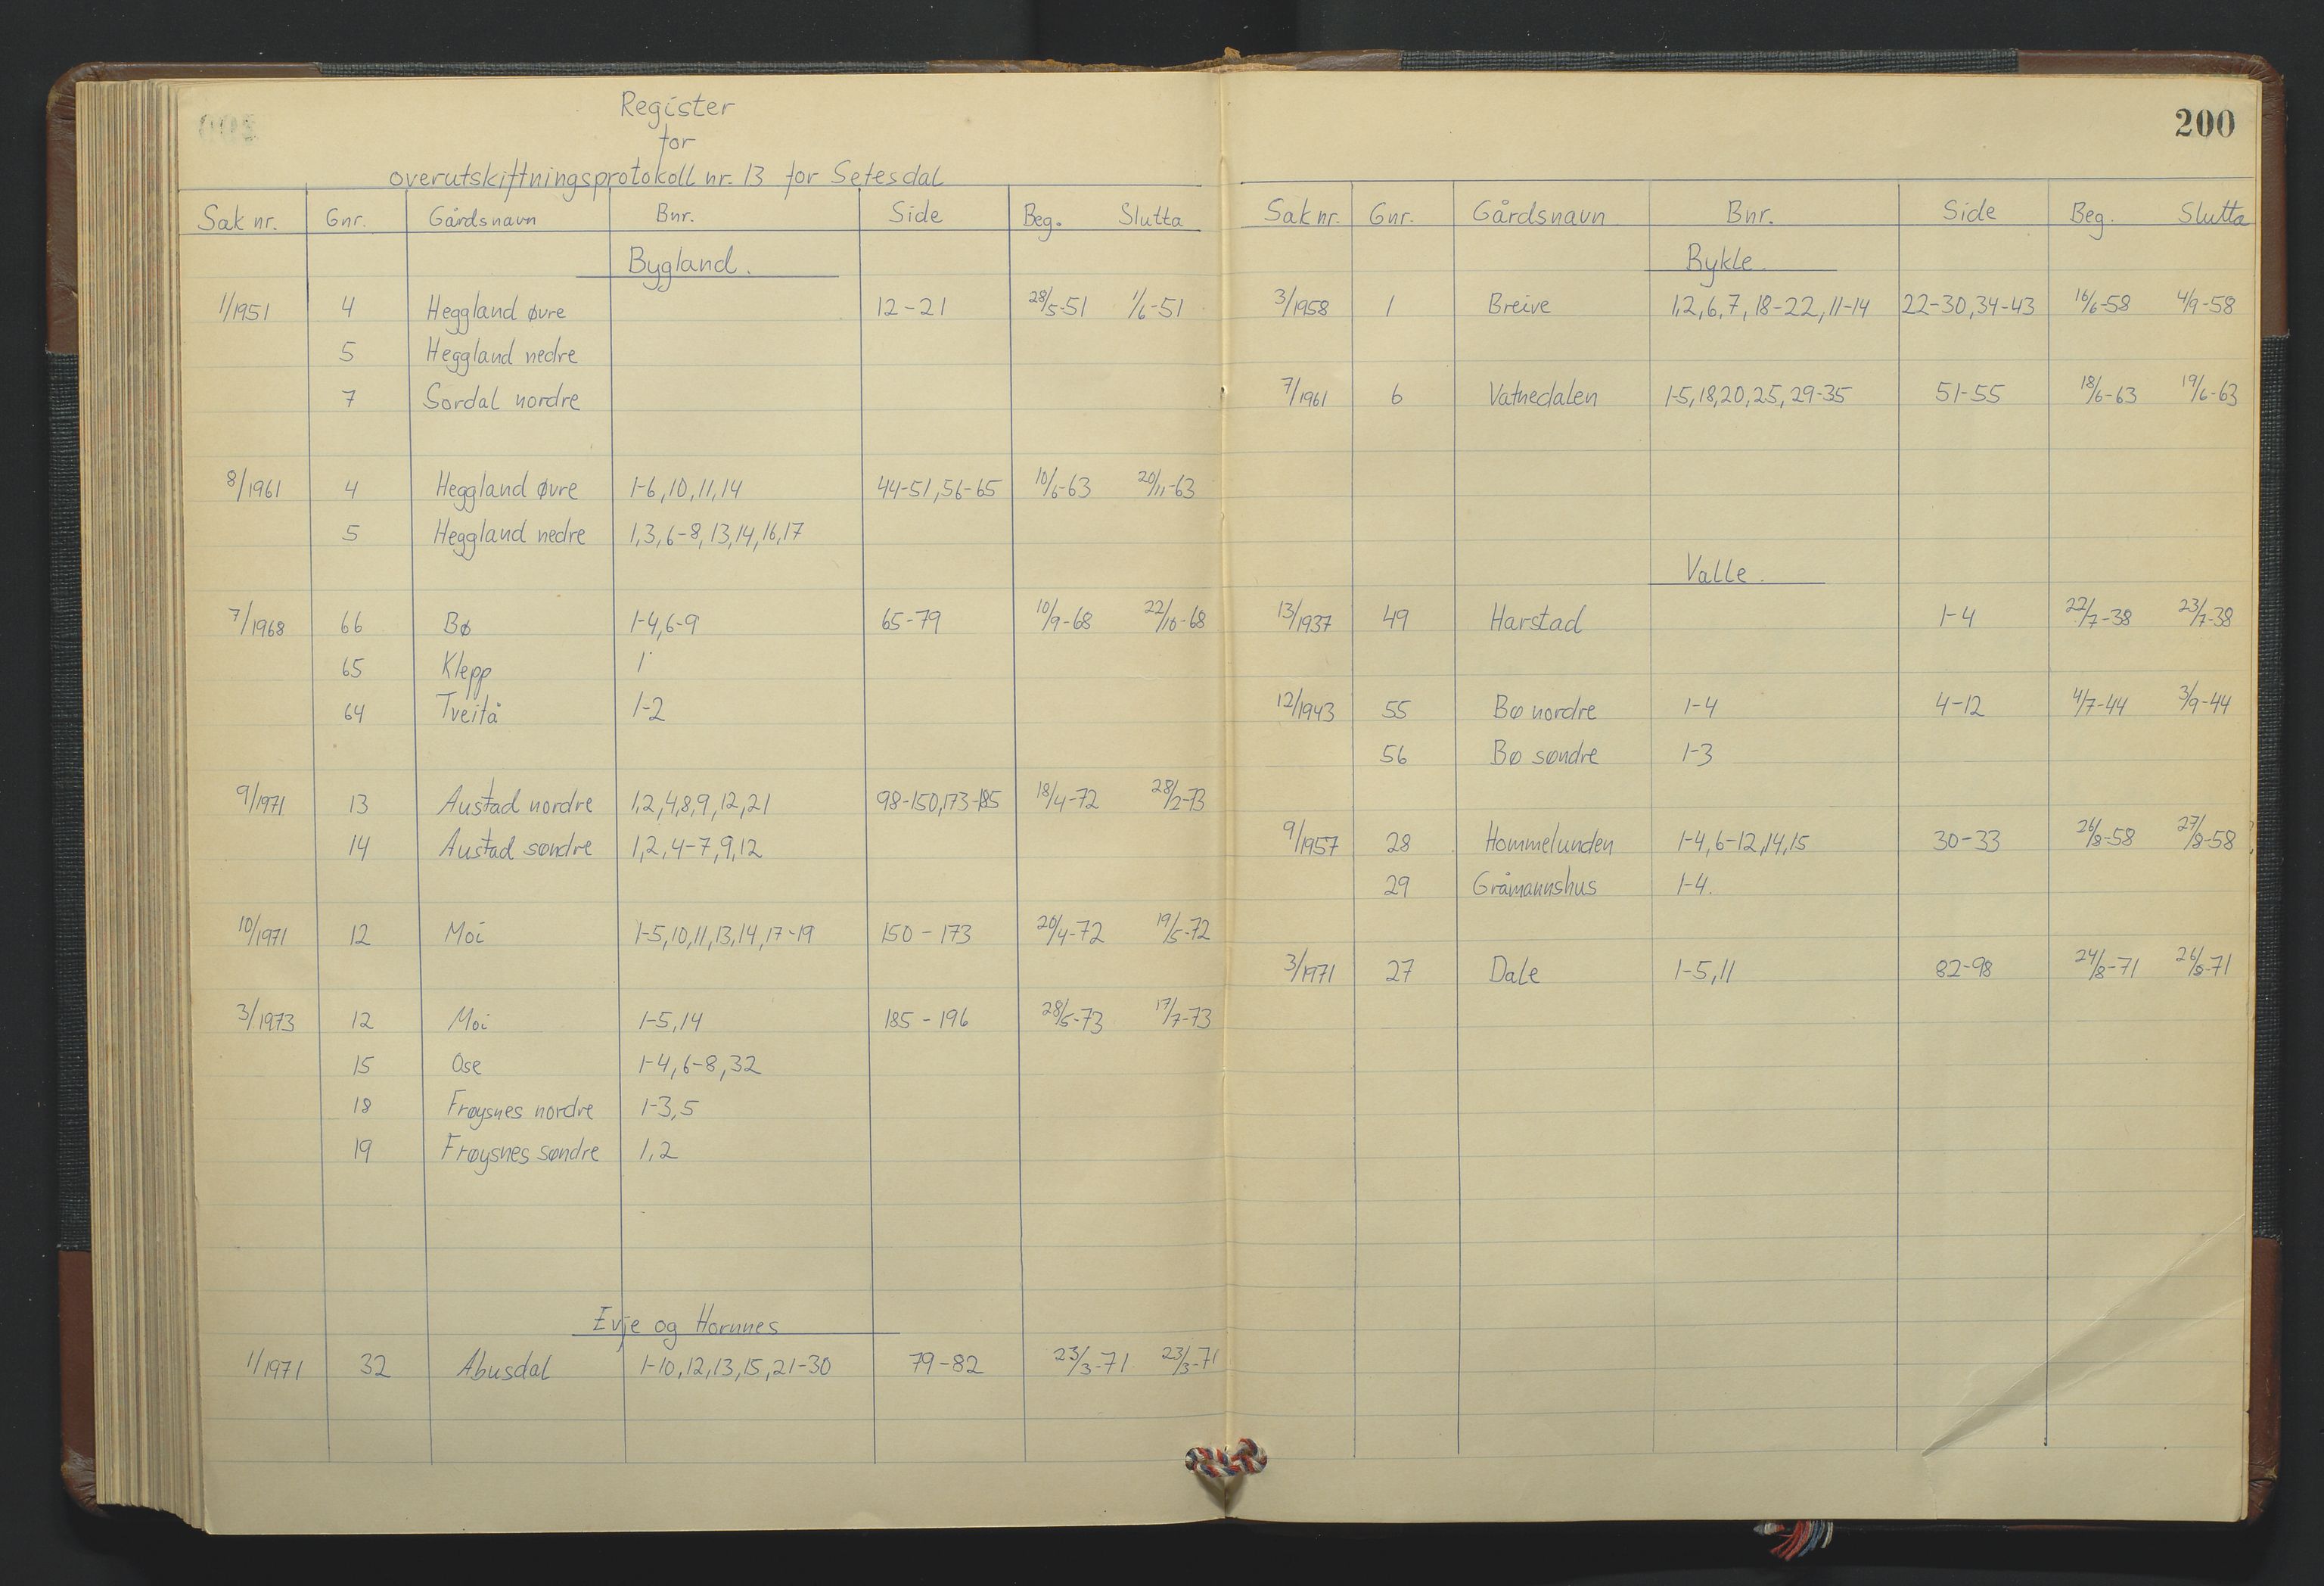 Register
for
overutskiftningsprotokoll nr. 13 for Setesdal
Sak nr. Gnr. Gårdsnavn Bnr. Side Beg. Slutta
Bygland.
1/1951 4 Heggland øvre 12-21 28/5-51 1/6-51
5 Heggland nedre
7 Sordal nordre
8/1961 4 Heggland øvre 1-6,10,11,14 44-51,56-65 10/6-63 20/11-63
5 Heggland nedre 1,3,6-8,13,14,16,17
7/1968 66 Bø 1-4,6-9 65-79 10/9-68 22/10-68
65 Klepp 1
64 Tveitå 1-2
9/1971 13 Austad nordre 1,2,4,8,9,12,21 98-150,173-185 18/4-72 28/2-73
14 Austad søndre 1,2,4-7,9,12
10/1971 12 Moi 1-5,10,11,13,14,17-19 150-173 20/4-72 19/5-72
3/1973 12 Moi 1-5,14 185-196 28/5-73 17/7-73
15 Ose 1-4,6-8,32
18 Frøysnes nordre 1-3,5
19 Frøysnes søndre 1,2
Evje og Hornnes
1/1971 32 Abusdal 1-10,12,13,15,21-30 79-82 23/3-71 23/3-71
200
Sak nr. Gnr. Gårdsnavn Bnr. Side Beg. Slutta
Bykle.
3/1958 1 Breive 1,2,6,7,18-22,11-14 22-30,34-43 16/6-58 4/9-58
7/1961 6 Vatnedalen 1-5,18,20,25,29-35 51-55 18/6-63 19/6-63
Valle.
13/1937 49 Harstad 1-4 22/7-38 23/7-38
12/1943 55 Bø nordre 1-4 4-12 4/7-44 3/9-44
56 Bø søndre 1-3
9/1957 28 Hommelunden 1-4,6-12,14,15 30-33 26/8-58 27/8-58
29 Gråmannshus 1-4.
3/1971 27 Dale 1-5,11 82-98 24/8-71 26/8-71